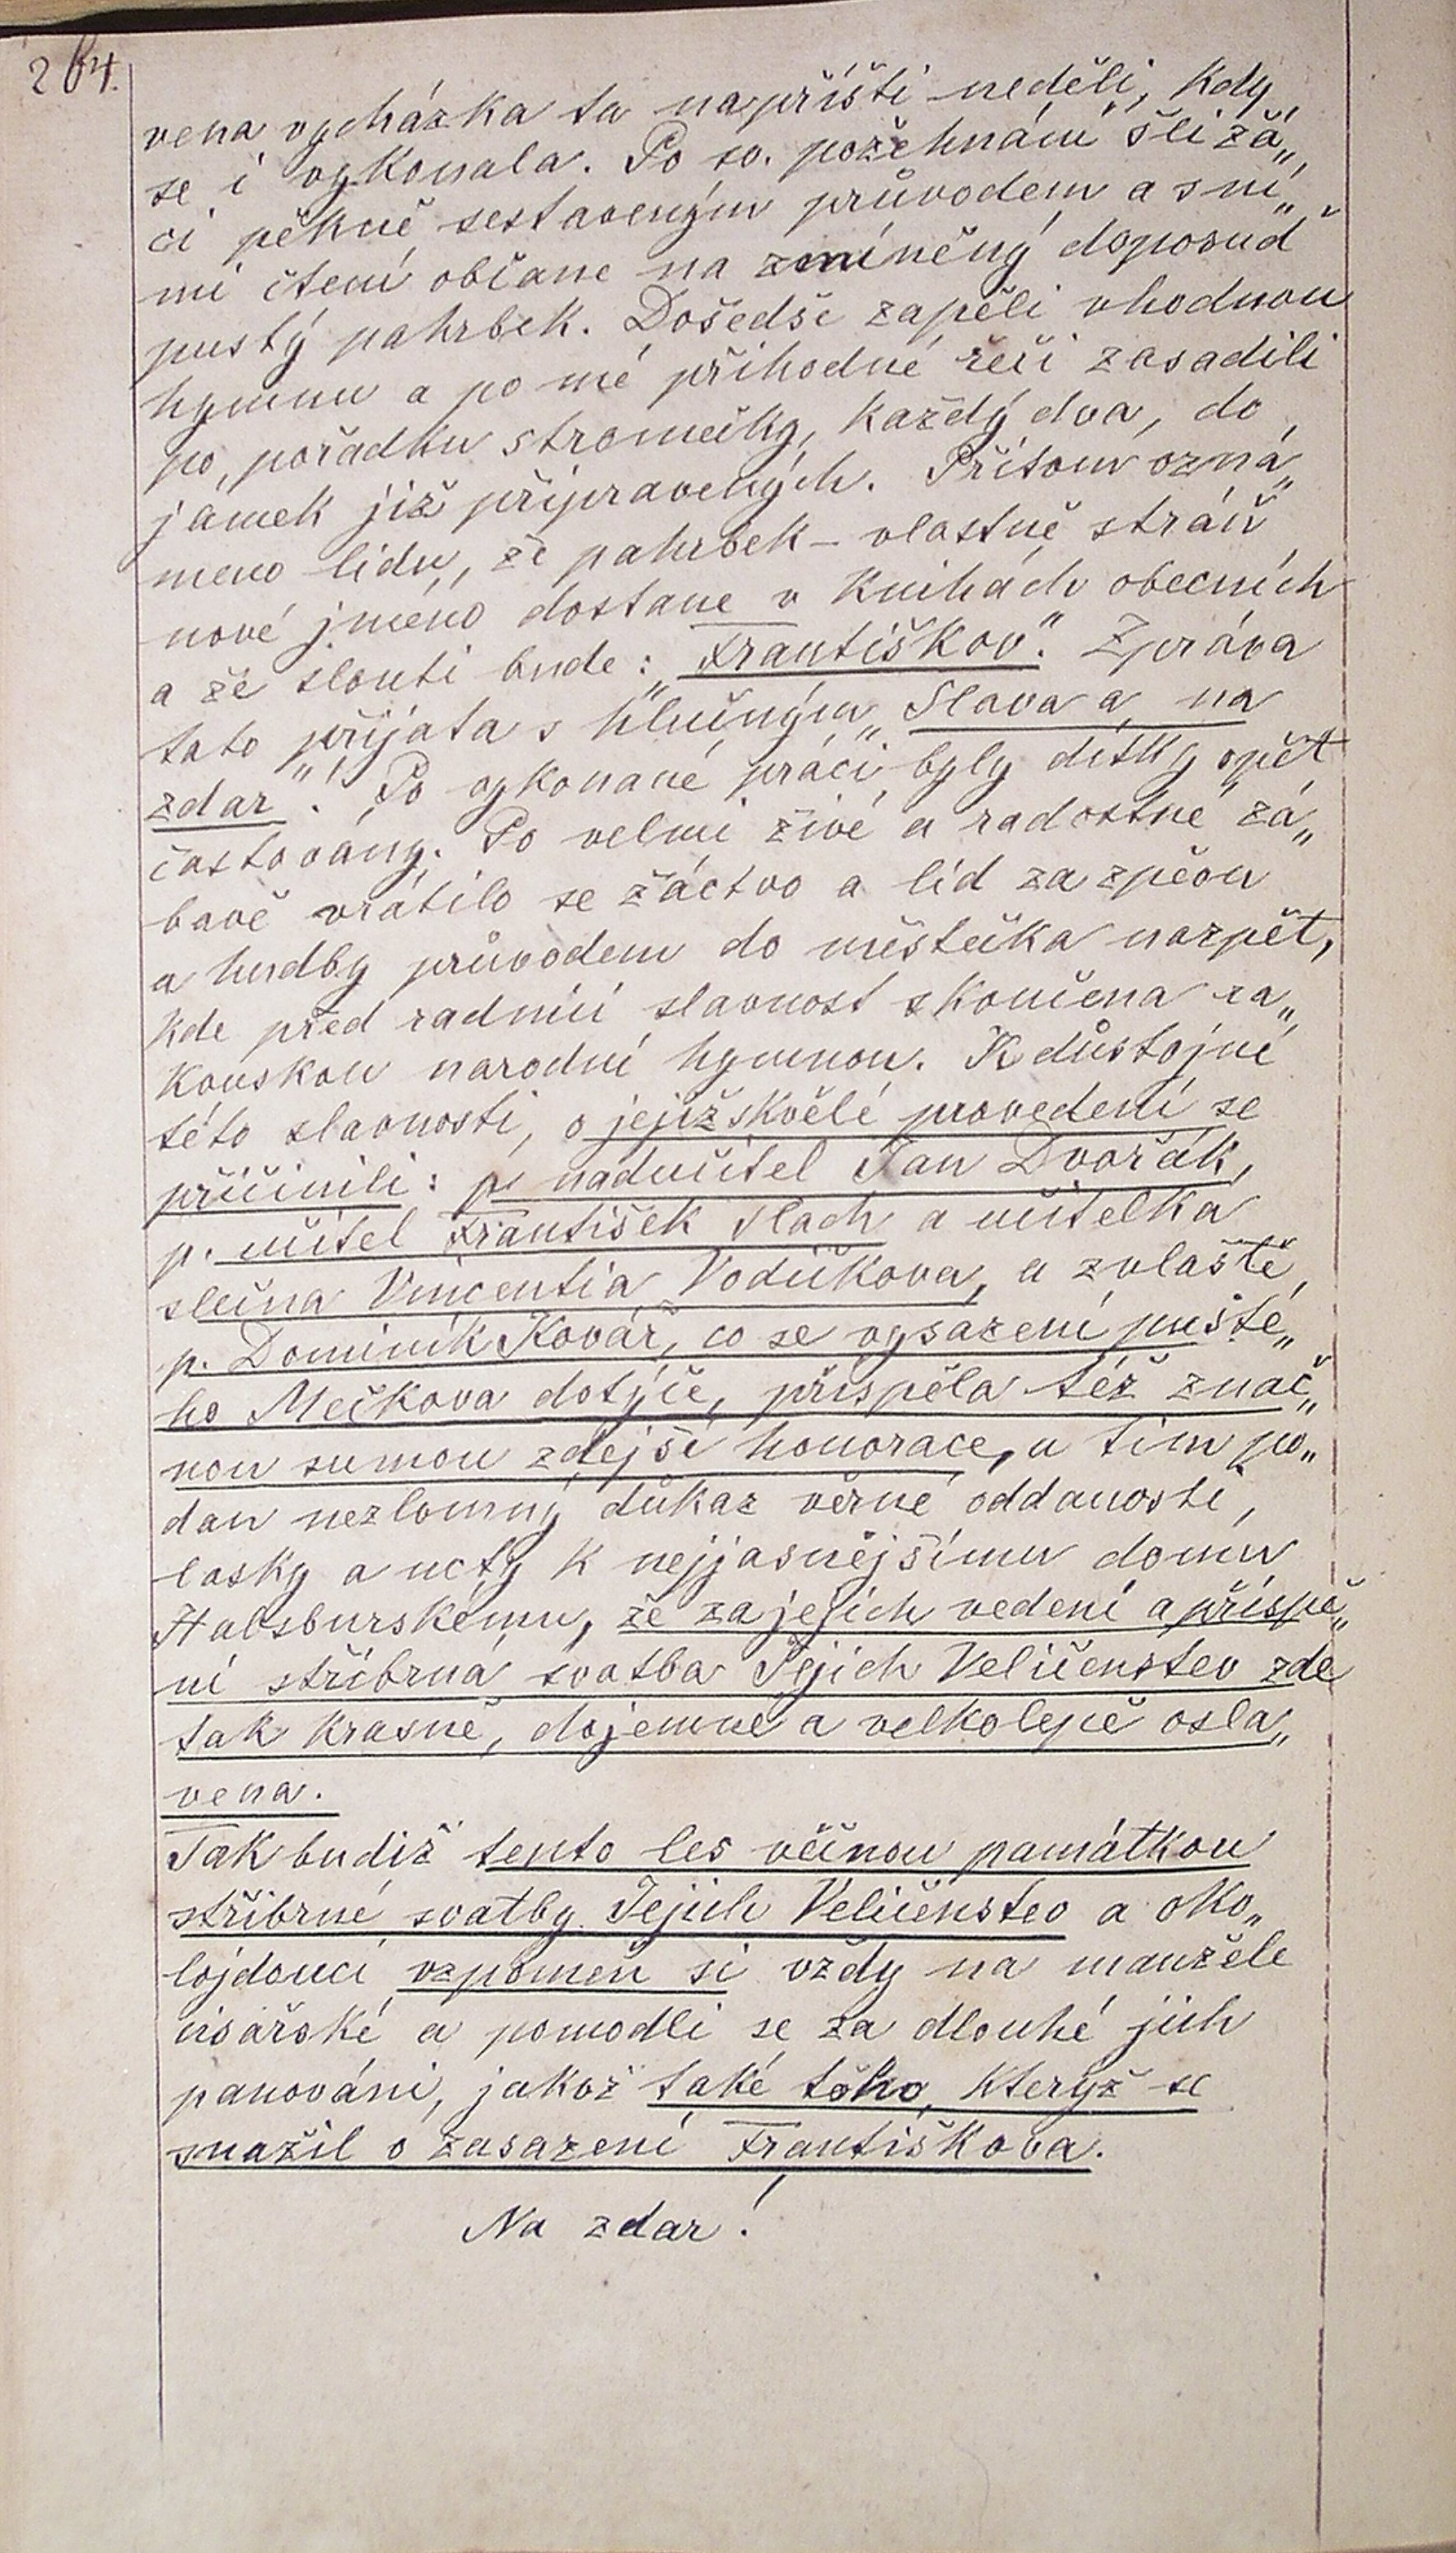 264.
vena vycházka ta na příští neděli, kdy
se i vykonala. Po sv. požehnání šli žá„
ci pěkně sestaveným průvodem a s ni„
mi čtení občane na zmíněný doposud
pustý pahrbek. Došedše zapěli vhodnou
hymnu a po mé příhodné řeči zasadili
po pořádku stromečky, každý dva, do
jamek již připravených. Přitom ozná„
meno lidu, že pahrbek – vlastně stráň
nové jméno dostane v knihách obecních
a že slouti bude: „Františkov." Zpráva
tato přijata s hlučným „Slava a na
zdar"! Po vykonané práci byly dítky opět
častovány. Po velmi živé a radostné zá„
bavě vrátilo se žáctvo a lid za zpěvu
a hudby průvodem do městečka nazpět,
kde před radnicí slavnost skončena ra„
kouskou narodní hymnou. K důstojné
této slavnosti, o jejíž skvělé provedení se
přičinili: p. nadučitel Jan Dvořák,
p. učitel František Vlach a učitelka
slečna Vincentia Vodičkova, a zvlaště
p. Dominik Kovář, co se vysazení pusté„
ho Mečkova dotýče, přispěla též znač„
nou sumou zdejší honorace, a tím po„
dan nezlomný důkaz věrné oddanosti,
lasky a ucty k nejjasnějšímu domu
Habsburskému, že za jejich vedení a příspě„
ní stříbrná svatba Jejich Veličenstev zde
tak krasně, dojemně a velkolepě osla„
vena.
Tak budiž tento les věčnou památkou
stříbrné svatby Jejich Veličenstev a oko„
lojdoucí vzpomeň si vždy na manžele
císařské a pomodli se za dlouhé jich
panování, jakož také toho, kterýž se
snažil o zasazení Františkova.
Na zdar!